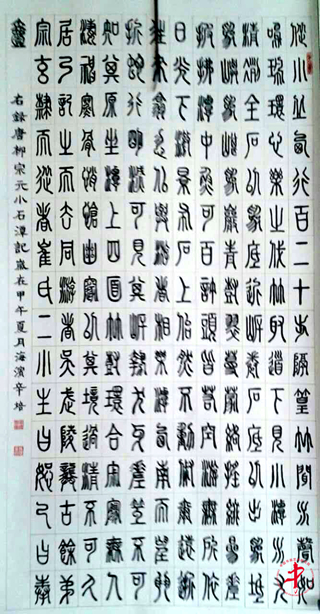 從小丘西行百二十步隔篁竹聞水聲如
鳴珮環心樂之伐竹取道下見小潭水尤
清冽全石以爲底近岸卷石底以出爲坻
爲嶼爲嵁爲巖青樹翠蔓蒙絡搖綴參差
披拂潭中魚可百許頭皆若空游無所依
日光下澈影布石上佁然不動俶爾遠逝
往來翕忽似與游者相樂潭西南而望斗
折蛇行明滅可見其岸勢犬牙差互不可
知其源坐潭上四面竹樹環合寂寥無人
淒神寒骨悄愴幽邃以其境過清不可久
居乃記之而去同游者吳武陵龔古餘弟
宗玄隸而從者崔氏二小生曰恕己曰奉
壹
右録唐柳宗元小石潭記歲在甲午夏月海濱辛培